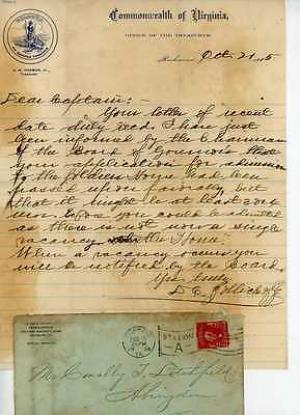 Commonwealth of Virginia,
OFFICE OF THE TREASURER.
Richmond, Oct. 21
Dear Captain:-
Your letter of recent
date duly recd. I have just
been informed by the Chairman
of the Board of Governors that
your application for admission
to the Soldiers Home had been
passed upon favorably, but
that it might be at least
before you could be admitted
as there is not now a single
vacancy in the Home.
When a vacancy occurs you
will be notified by the Board.
Yrs truly
STATION
A
Abingdon